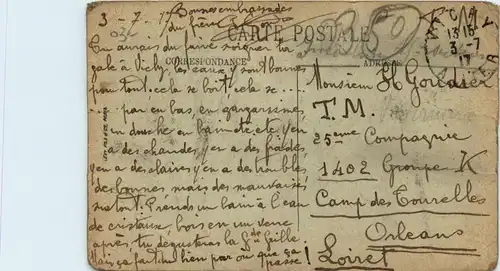 3-7-17
Bonnes embrassades
du frère
CARTE POSTALE
CORRESPONDANCE
ADRESSE
Tu aurais du suivre soigner ta
gale à Vichy, les eaux y sont bonnes
pour tout. cela se boit. cela se ....
.... par en bas, en gargarisme,
en douche en bain etc etc y en
a des chaudes, y en a des froides
y en a des claires y en a des troubles
des bonnes mais des mauvaises
surtout. Prends un bain à l'eau
de cristaux, bois en un verre
après, tu dégusteras la Gde Grille
Mais ça fait du bien par où que ça
passe!
Monsieur H Gordier
T. M.
25eme Compagnie
1402 Groupe K
Camp des Tourelles
Orleans
Loiret
13 15
3 -7
17